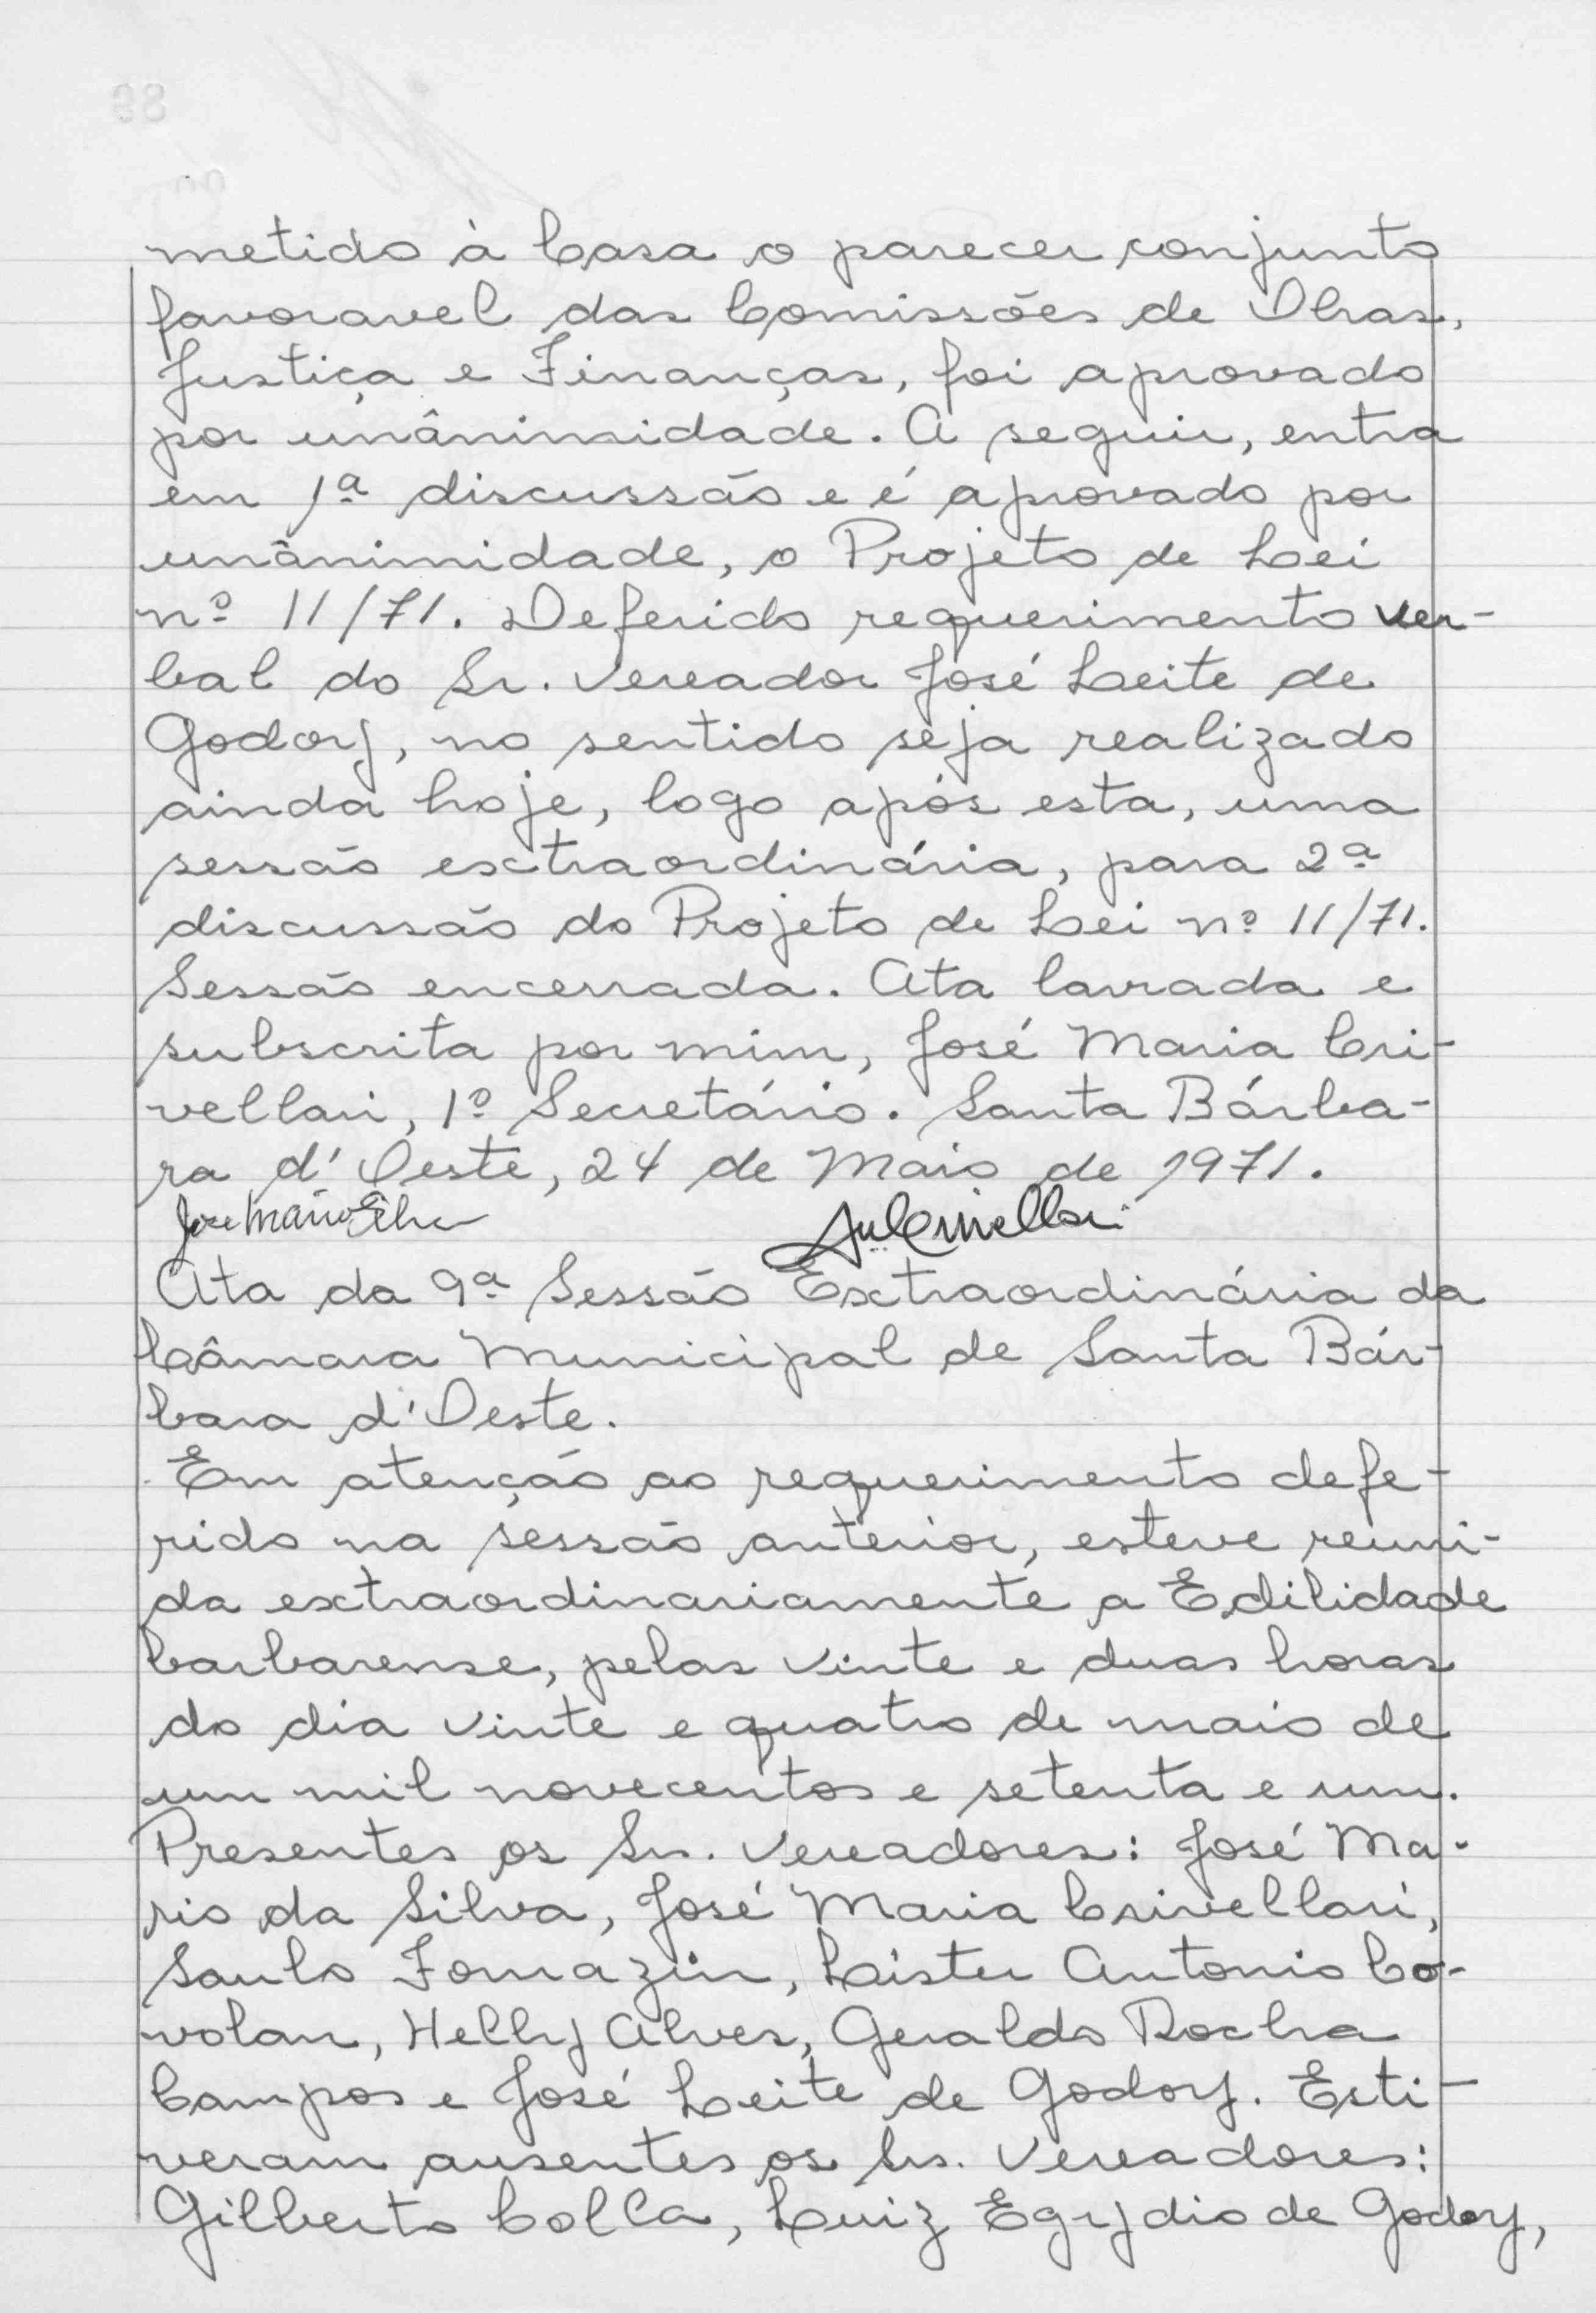 metido à Casa o parecer conjunto
favoravel das Comissões de Obras,
Justiça e Finanças, foi aprovado
por unânimidade. A seguir, entra
em 1ª discussão e é aprovado por
unânimidade, o Projeto de Lei
nº 11/71. Deferido requerimento ver-
bal do Sr. Vereador José Leite de
Godoy, no sentido seja realizado
ainda hoje, logo após esta, uma
sessão extraordinária, para 2ª
discussão do Projeto de Lei nº 11/71.
Sessão encerrada. Ata lavrada e
subscrita por mim, José Maria Cri-
vellari, 1º Secretário. Santa Bárba-
ra d'Oeste, 24 de Maio de 1971.
José Mario Silva
Ata da 9ª Sessão Extraordinária da
Câmara Municipal de Santa Bár-
bara d'Oeste.
Em atenção ao requerimento defe-
rido na sessão anterior, esteve reuni-
da extraordinariamente a Edilidade
barbarense, pelas vinte e duas horas
do dia vinte e quatro de maio de
um mil novecentos e setenta e um.
Presentes os Srs. Vereadores: José Ma-
rio da Silva, José Maria Crivellari,
Saulo Fornazin, Lister Antonio Co-
volan, Helly Alves, Geraldo Rocha
Campos e José Leite de Godoy. Esti-
veram ausentes os Srs. Vereadores:
Gilberto Colla, Luiz Egydio de Godoy,